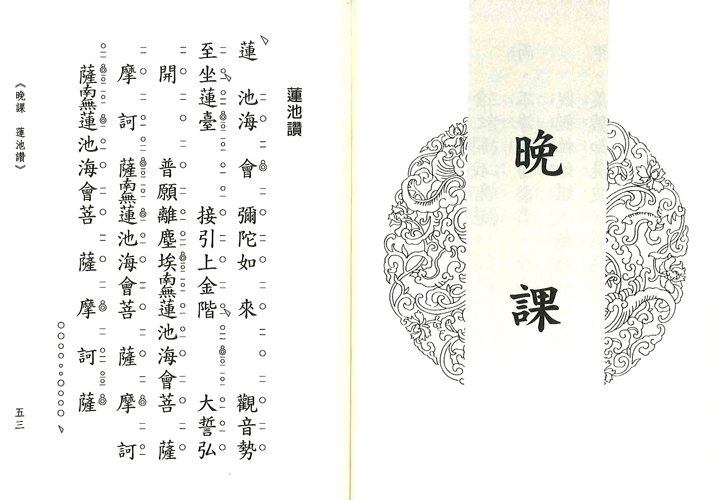 晚課
蓮池讚
蓮池海會彌陀如來觀音勢
至坐蓮臺接引上金階大誓弘
開普願離塵埃南無蓮池海會菩薩
摩訶薩南無蓮池海會菩薩摩訶
薩南無蓮池海會菩薩摩訶薩
《晚課 蓮池讚》
五三